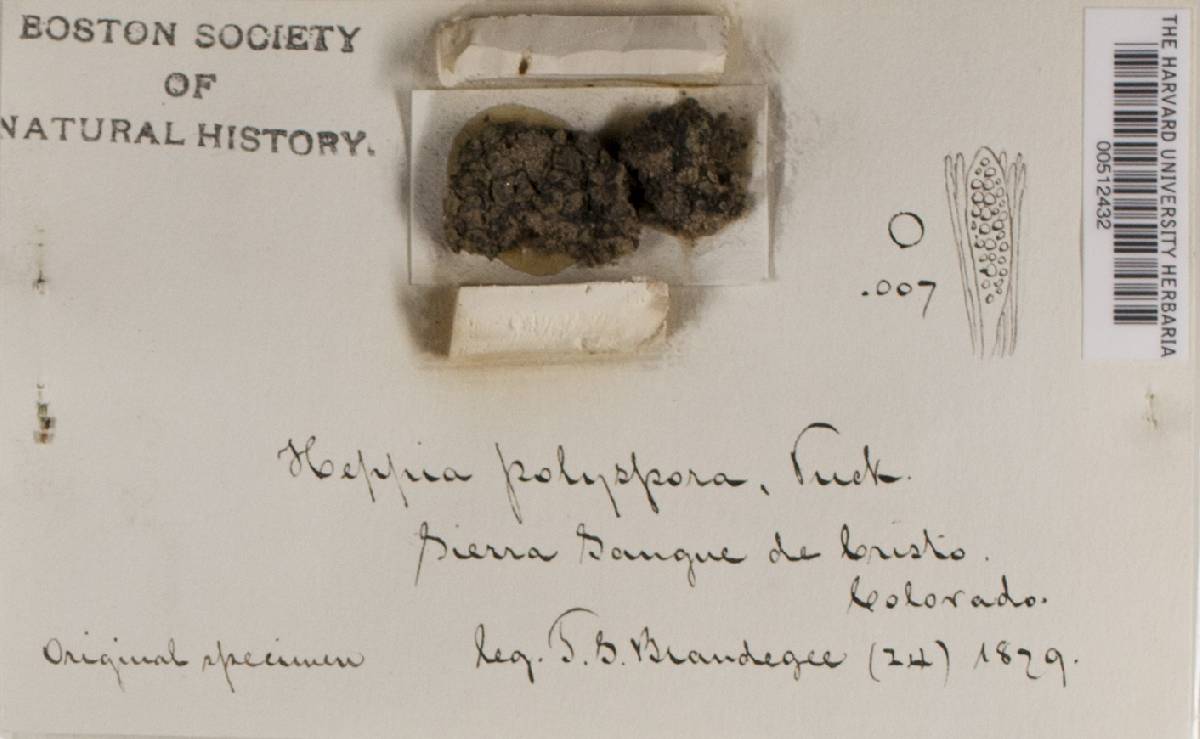 BOSTON SOCIETY
OF
NATURAL HISTORY.
THE HARVARD UNIVERSITY HERBARIA
00512432
.007
Heppia polyspora, Tuck.
Sierra Sangue de Cristo.
Colorado.
Original specimen
leg. T. S. Brandegee (24) 1879.